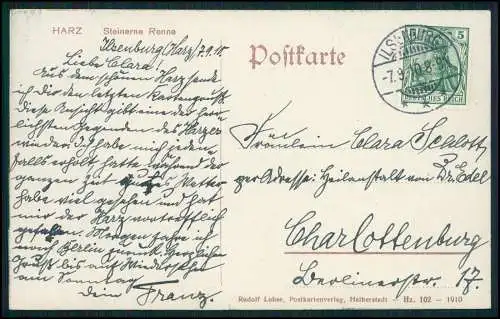 HARZ Steinerne Renne
Ilsenburg (Harz) 7.9.10.
Liebe Clara!
Aus dem schönen Harz sende
ich Dir den letzten Kartengruß
diese Ansicht gibt eine der herr
lichsten Gegenden des Harzes
wieder. Ich habe mich jeden
falls erholt hatte während der
ganzen Zeit gutes Wetter
habe viel gesehen und hat
mir der Harz vortrefflich
gefallen. Morgen fahre ich
nach Berlin zurück. Herzlichen
Gruß bis auf Wiedersehen
am Sonntag
Dein Franz.
Postkarte
ILSENBURG
-7.9.10.8-9V.
5
DEUTSCHES REICH
Fräulein Clara Schlott,
per Adresse: Heilanstalt von Dr. Edel
Charlottenburg
Berlinerstr. 17.
Rudolf Loëse, Postkartenverlag, Halberstadt - Hz. 102 - 1910